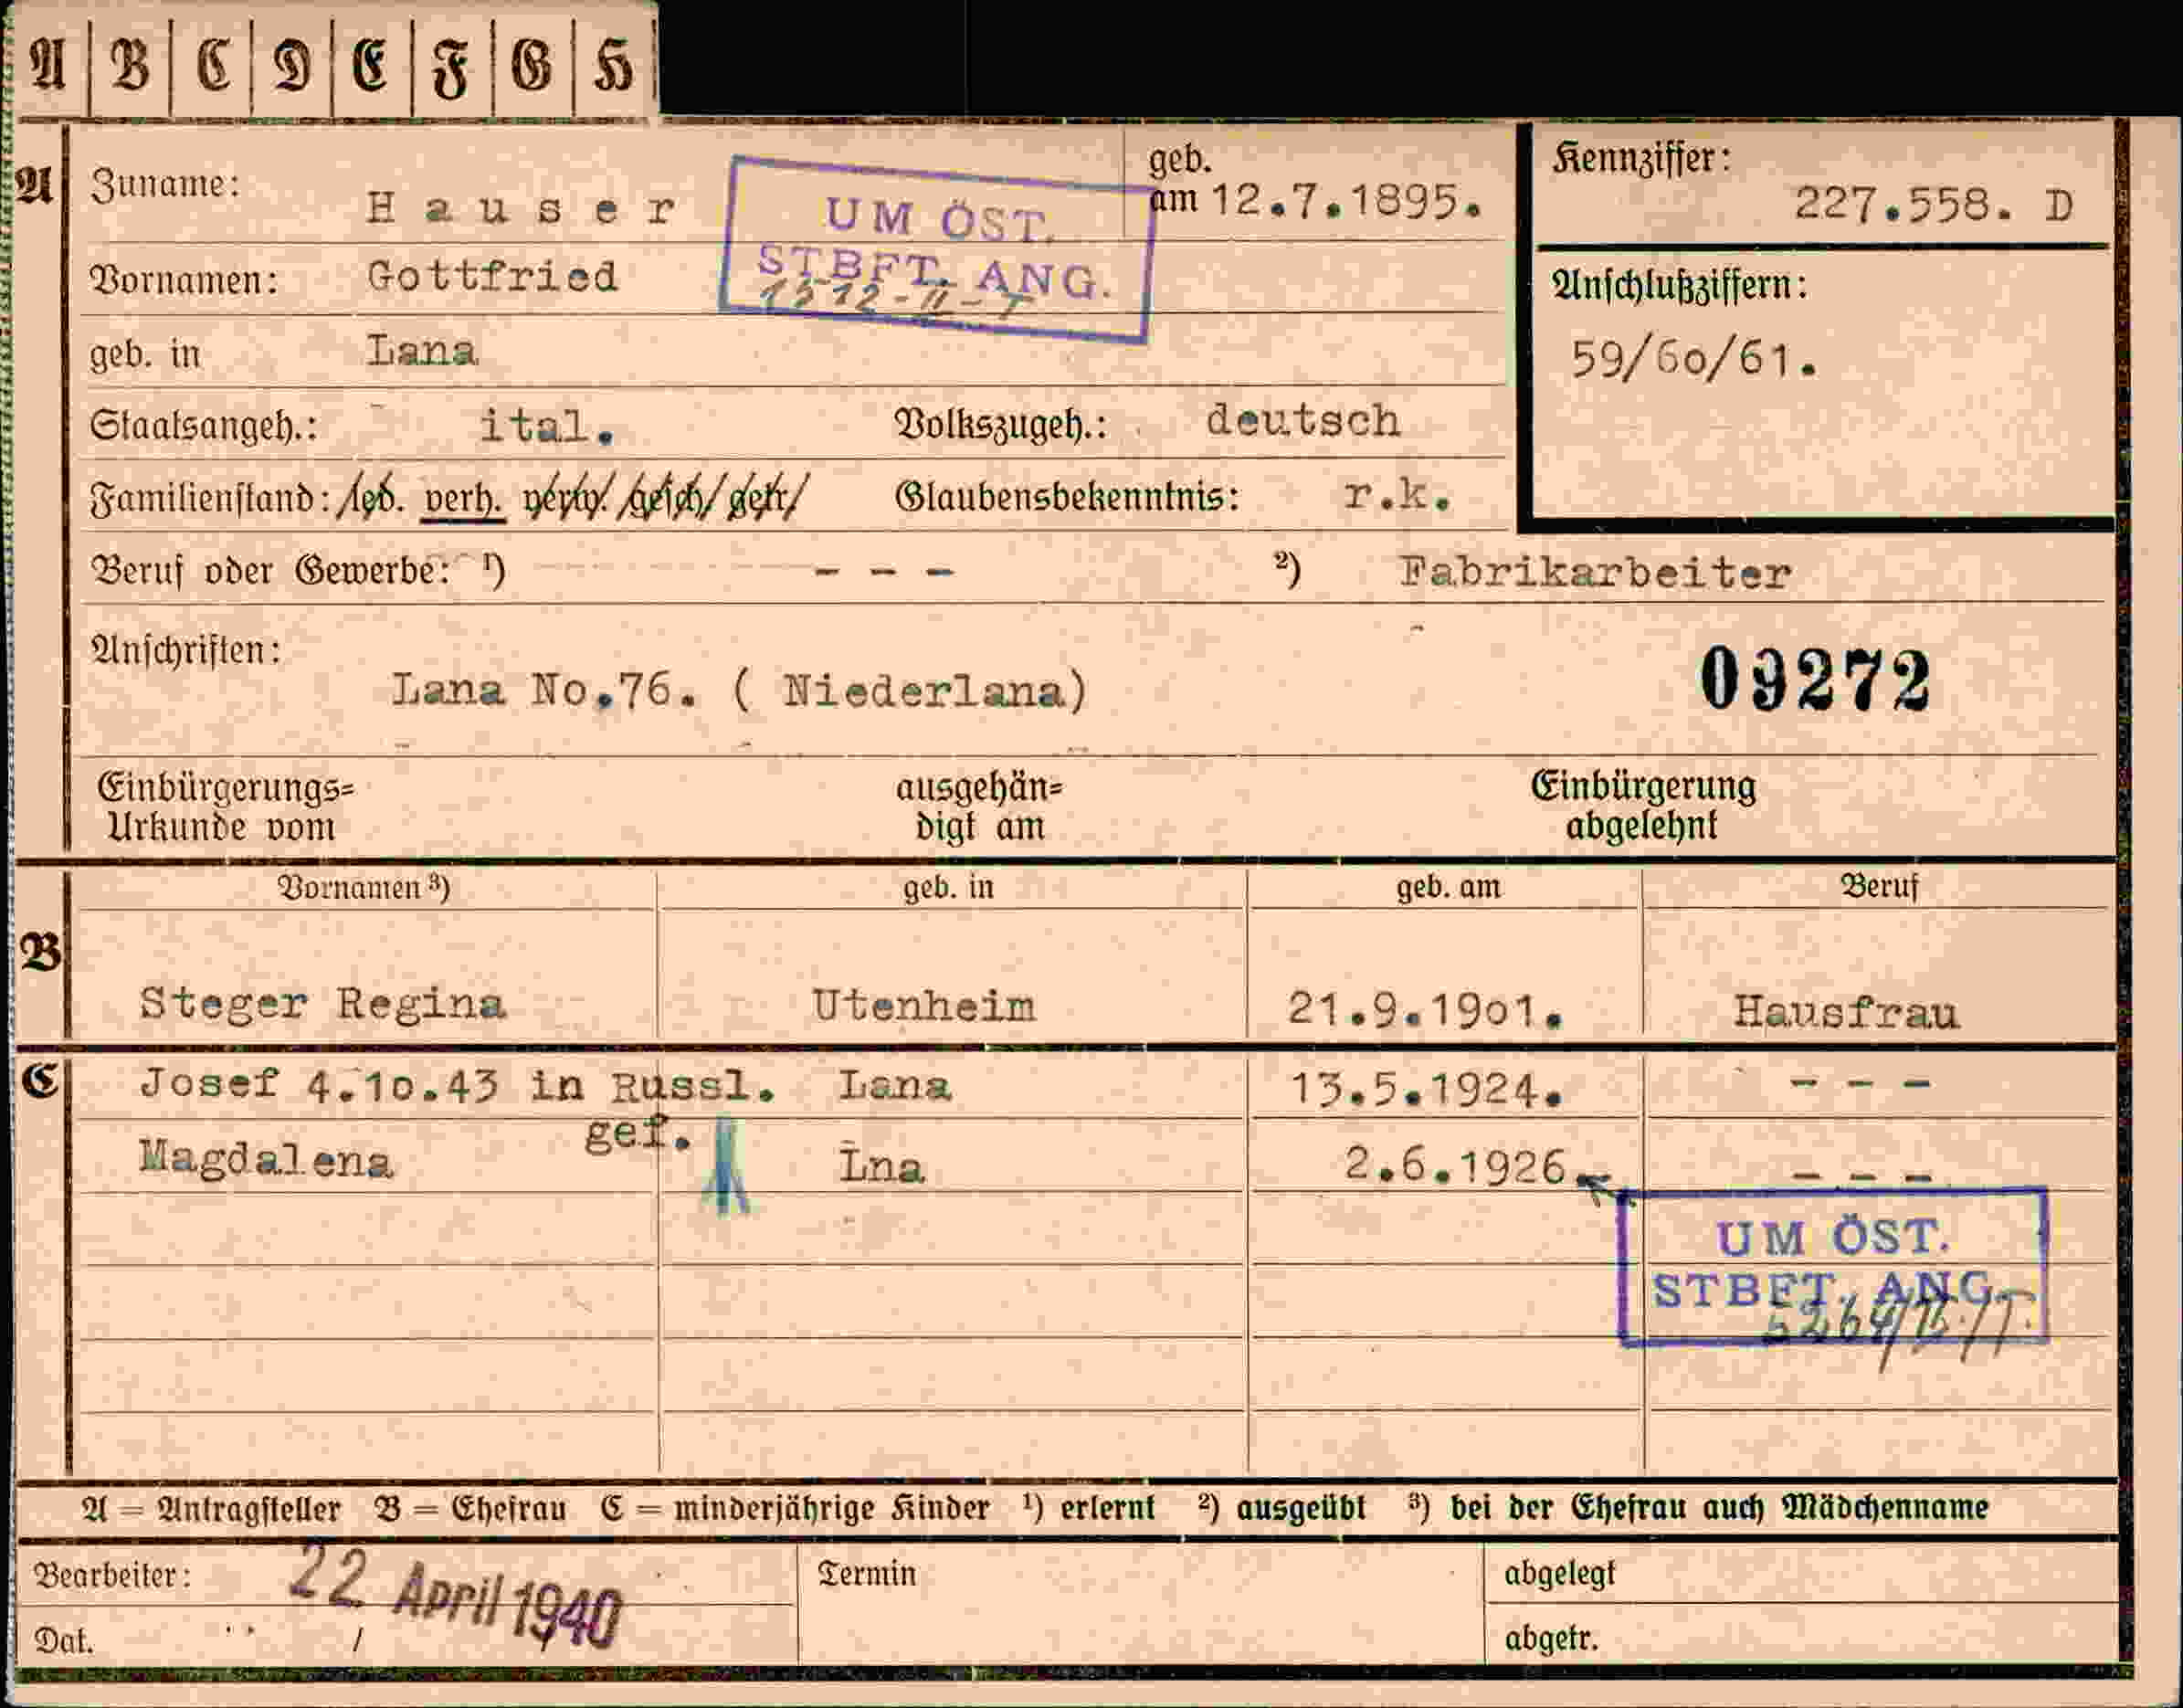 A B C D E F G H
A Zuname: Hauser geb. am 12.7.1895. Kennziffer: 227.558. D
UM ÖST.
STBFT. ANG.
Vornamen: Gottfried
Anschlußziffern:
geb. in Lana 59/6o/61.
Staatsangeh.: ital. Volkszugeh.: deutsch
Familienstand: led. verh. verw. gesch. getr. Glaubensbekenntnis: r.k.
Beruf oder Gewerbe: ¹) - - - ²) Fabrikarbeiter
Anschriften:
Lana No.76. ( Niederlana) 09272
Einbürgerungs= ausgehän= Einbürgerung
Urkunde vom digt am abgelehnt
Vornamen ³) geb. in geb. am Beruf
B
Steger Regina Utenheim 21.9.19o1. Hausfrau
C Josef 4.1o.43 in Russl. Lana 13.5.1924. - - -
gef.
Magdalena Lna 2.6.1926. - - -
UM ÖST.
STBFT. ANG.
A = Antragsteller B = Ehefrau C = minderjährige Kinder ¹) erlernt ²) ausgeübt ³) bei der Ehefrau auch Mädchenname
Bearbeiter: 22 April 1940 Termin abgelegt
Dat. abgetr.